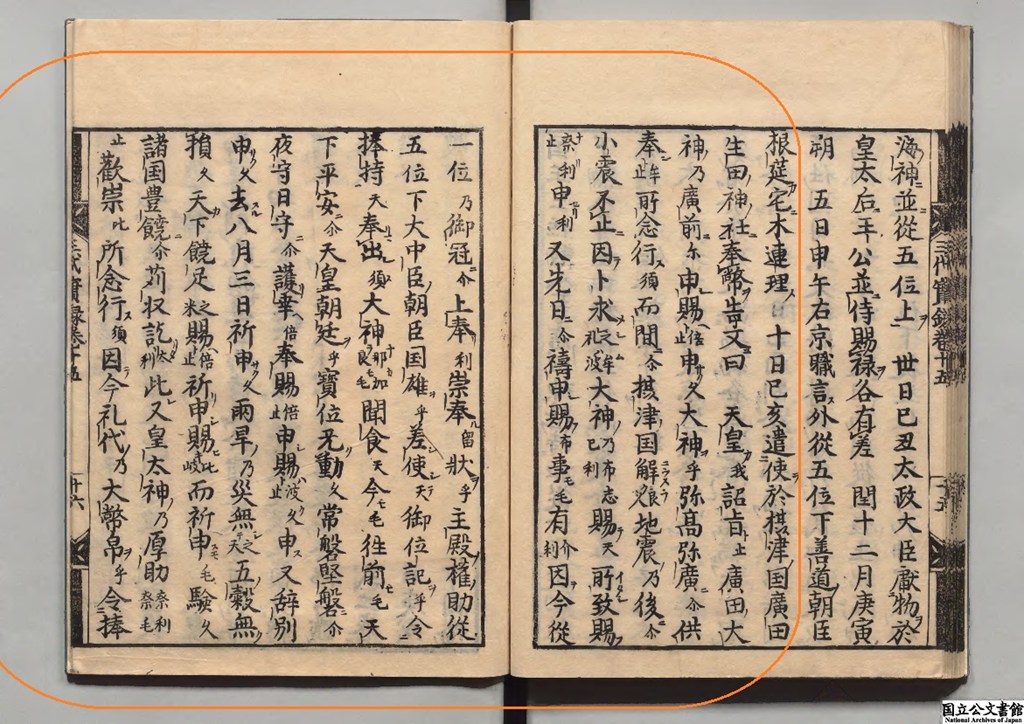 海神並從五位上 丗日己丑太政大臣獻物於
皇太后王公並侍賜禄各有差 閏十二月庚寅
朔 五日甲午右京職言外從五位下善道朝臣
根莚宅木連理 十日己亥遣使於攝津国廣田
生田神社奉幣告文曰 天皇我詔旨止廣田大
神乃廣前尓申賜倍止申久大神乎弥高弥廣尓供
奉牟止所念行須而間尓攝津国解良久地震乃後尓
小震不止因卜求礼波大神乃布志己利賜天所致賜
奈利止申利又先日尓禱申賜布事毛有介利因今從
一位乃御冠尓上奉利崇奉留狀乎主殿權助從
五位下大中臣朝臣国雄乎差使天御位記乎令
捧持天奉出須大神那加良毛聞食天今毛往前毛天
下平安尓天皇朝廷乎寶位无動久常磐堅磐尓
夜守日守尓護幸倍奉賜倍止申賜波久申又辞別
申久去八月三日祈申久雨旱乃災無之天五穀無
損久天下饒足之賜倍止祈申賜比岐而祈申毛驗久
諸国豊饒尓苅収訖太利此又皇太神乃厚助奈利毛
止歡崇比所念行須因今礼代乃大幣帛乎令捧
三代實録巻十五
三代實録巻十五
十六
国立公文書館
National Archives of Japan